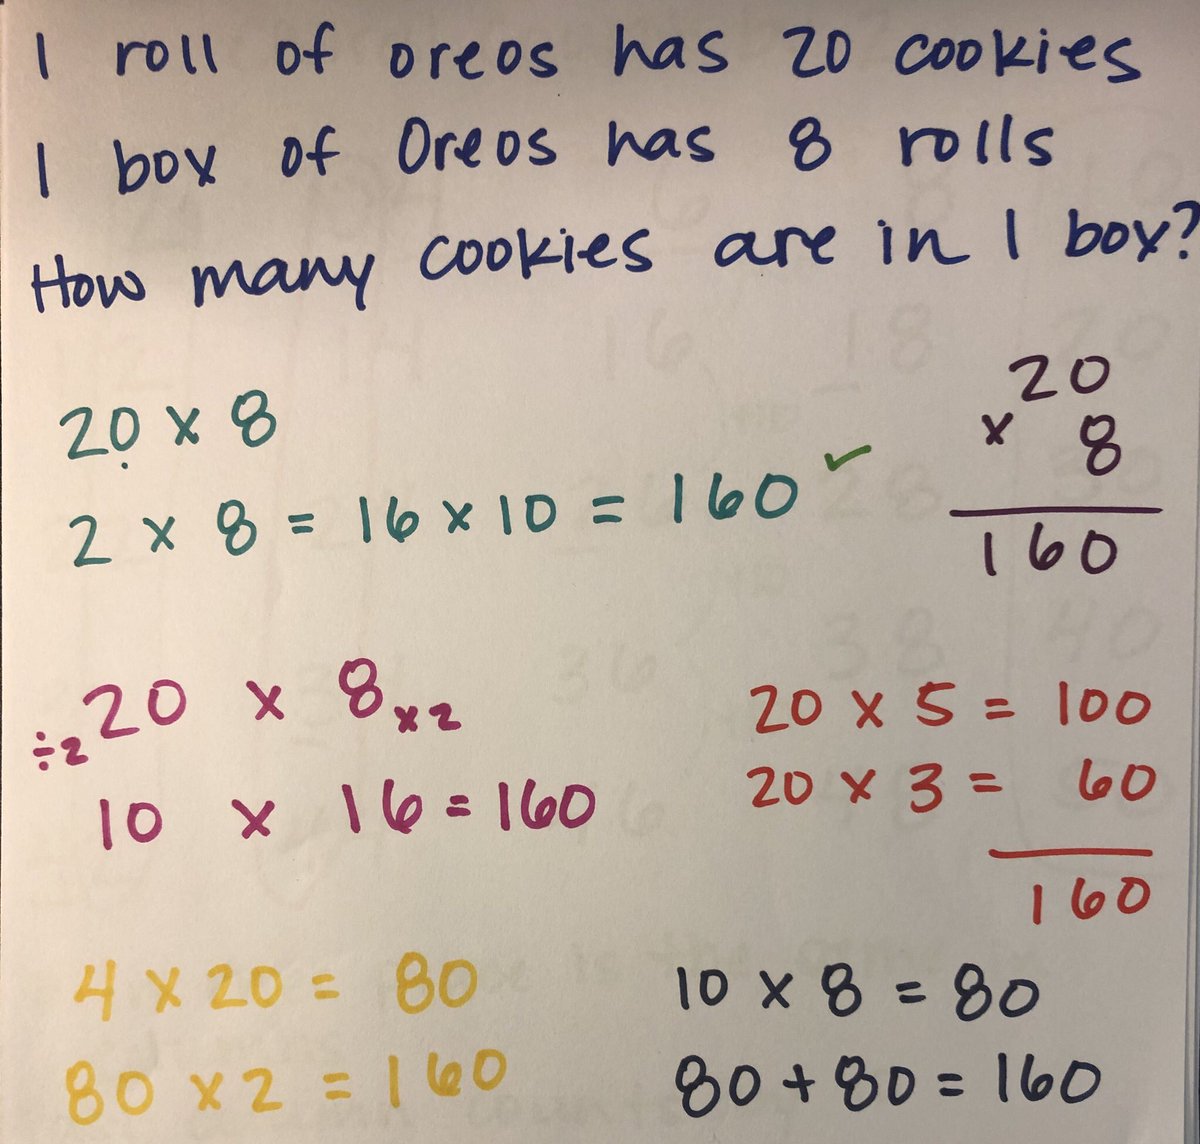 1 roll of oreos has 20 cookies
1 box of Oreos has 8 rolls
How many cookies are in 1 box?
20 x 8
2 x 8 = 16 x 10 = 160 ✓
20
x 8
160
÷2 20 x 8 x2
10 x 16 = 160
20 x 5 = 100
20 x 3 = 60
160
4 x 20 = 80
80 x 2 = 160
10 x 8 = 80
80 + 80 = 160